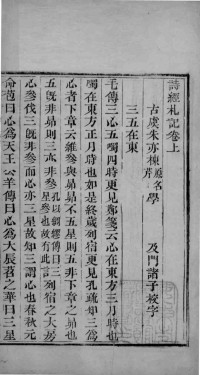 詩經札記卷上
古虞朱亦棟 學 及門諸子校字
三五在東
毛傳三心五噣四時更見鄭箋云心在東方三月時也
噣在東方正月時也如是終歲列宿更見孔疏知三為
心者下章云維參與昴昴不五星則五非下章之昴也
五既非昴則三亦非參
列宿之大房
心參伐三既非參而心亦三星故知三謂心也春秋元
命苞曰心為天王公羊傳曰心為大辰苕之華曰三星